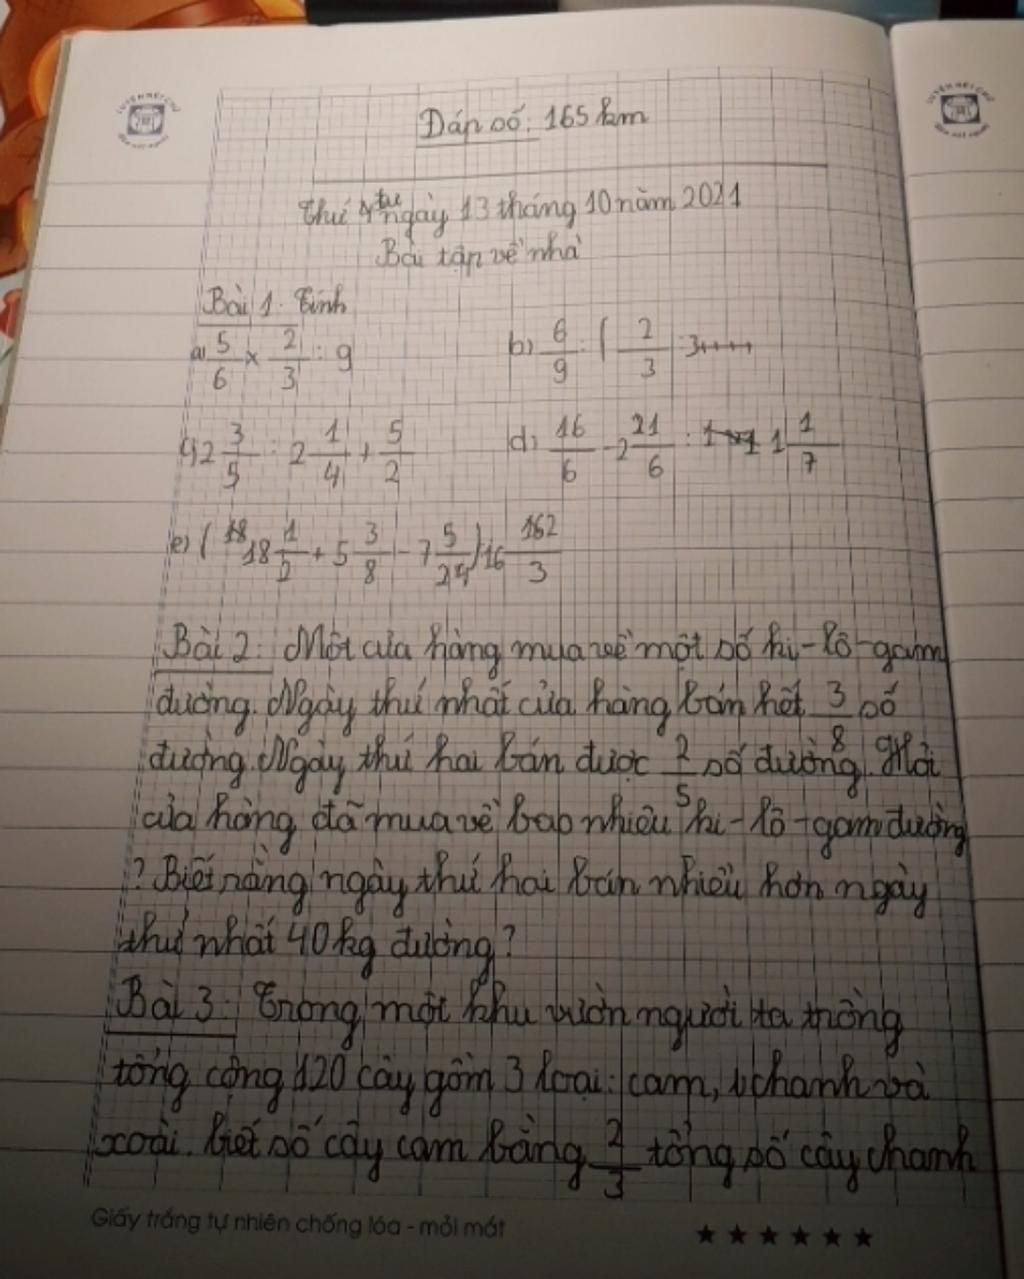 Đáp số: 165 km
Thứ 4 tư ngày 13 tháng 10 năm 2021
Bài tập về nhà
Bài 1. Tính
a) 5/6 × 2/3 : 9 b) 6/9 : ( 2/3 : 3
c) 2 3/5 : 2 1/4 + 5/2 d) 16/6 - 2 21/6 : 1 1/7
e) ( 18 1/2 + 5 3/8 - 7 5/24 ) 16 162/3
Bài 2: Một cửa hàng mua về một số ki-lô-gam
đường. Ngày thứ nhất cửa hàng bán hết 3/8 số
đường. Ngày thứ hai bán được 2/5 số đường. Hỏi
cửa hàng đã mua về bao nhiêu ki-lô-gam đường
? Biết rằng ngày thứ hai bán nhiều hơn ngày
thứ nhất 40 kg đường?
Bài 3: Trong một khu vườn người ta trồng
tổng cộng 120 cây gồm 3 loại: cam, chanh và
xoài. biết số cây cam bằng 2/3 tổng số cây chanh
Giấy trắng tự nhiên chống lóa - mỏi mắt